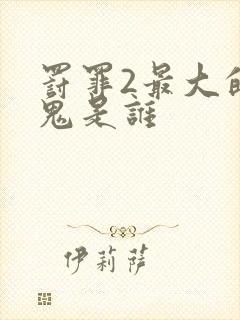 罸罪2最大的
鬼是誰
伊莉薩